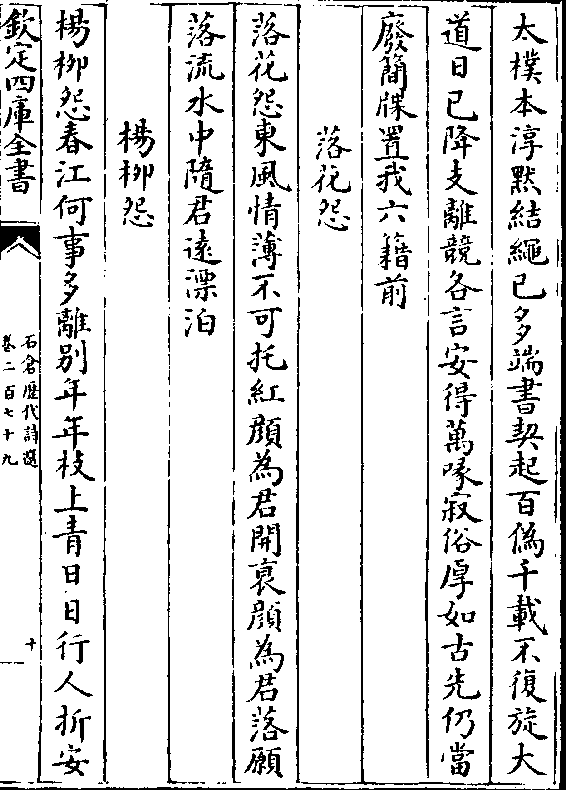 太樸本淳黙結繩已多端書契起百偽千載不復旋大
道日已降支離競各言安得萬喙寂俗厚如古先仍當
廢簡牒置我六籍前
落花怨
落花怨東風情薄不可托紅顔為君開衰顔為君落願
落流水中隨君遠漂泊
楊柳怨
楊柳怨春江何事多離别年年枝上青日日行人折安
欽定四庫全書
石倉歴代詩選
卷二百七十九
十